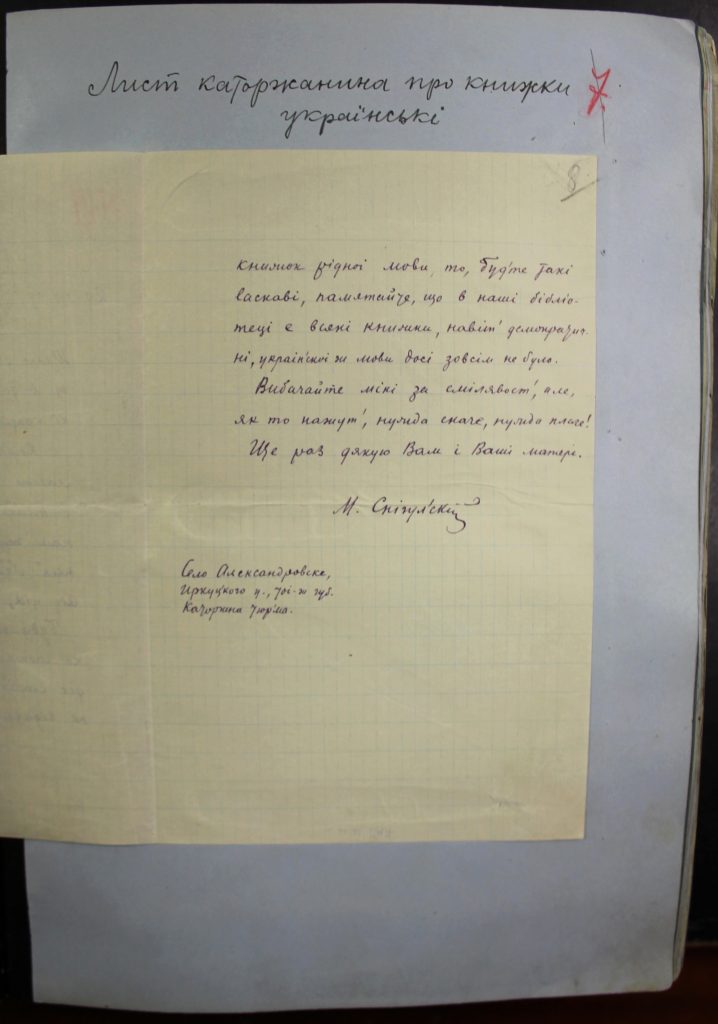 Лист каторжанина про книжки 7
українські
8
книжок рідної мови, то, буд'те такі
ласкаві, памятайте, що в наші бібліо-
теці є всякі книжки, навіт' демократич-
ні, україн'скої ж мови досі зовсім не було.
Вибачайте міні за смілявост', але,
як то кажут', нужда скаче, нужда плаче!
Ще раз дякую Вам і Ваші матері.
М.
Село Александровске,
Іркуцкого у., тої-ж губ.
Каторжна тюр'ма.